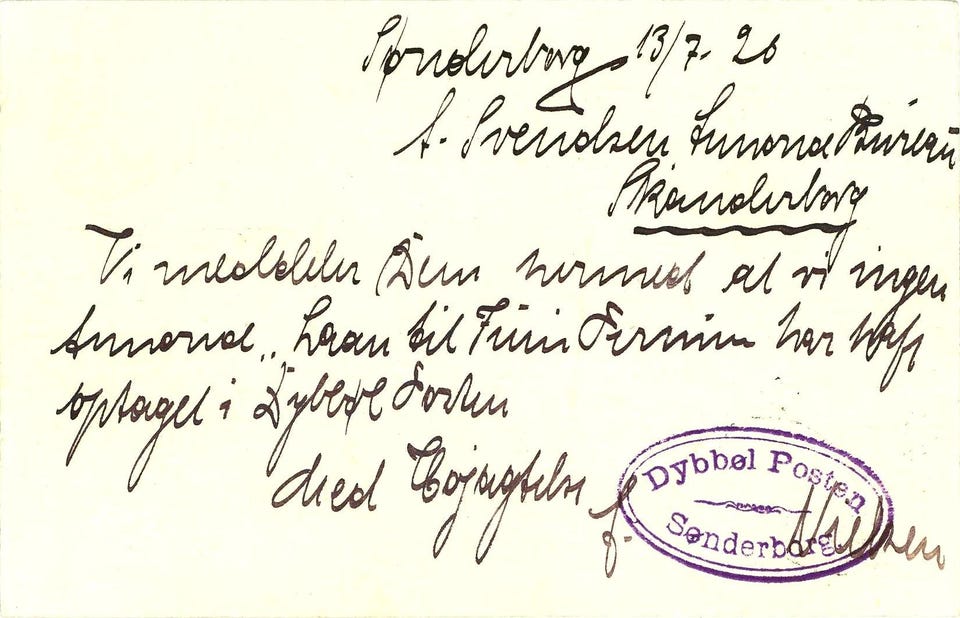 Sønderborg 13/7. 20
A. Svendsen Annonce Büreaü
Skanderborg
Vi meddeler Dem hermed at vi ingen
Annonce „ Laan til Termin har haft
optaget i Dybbøl Posten
Med Højagtelse
f.
Dybbøl Posten
Sønderborg
Nielsen